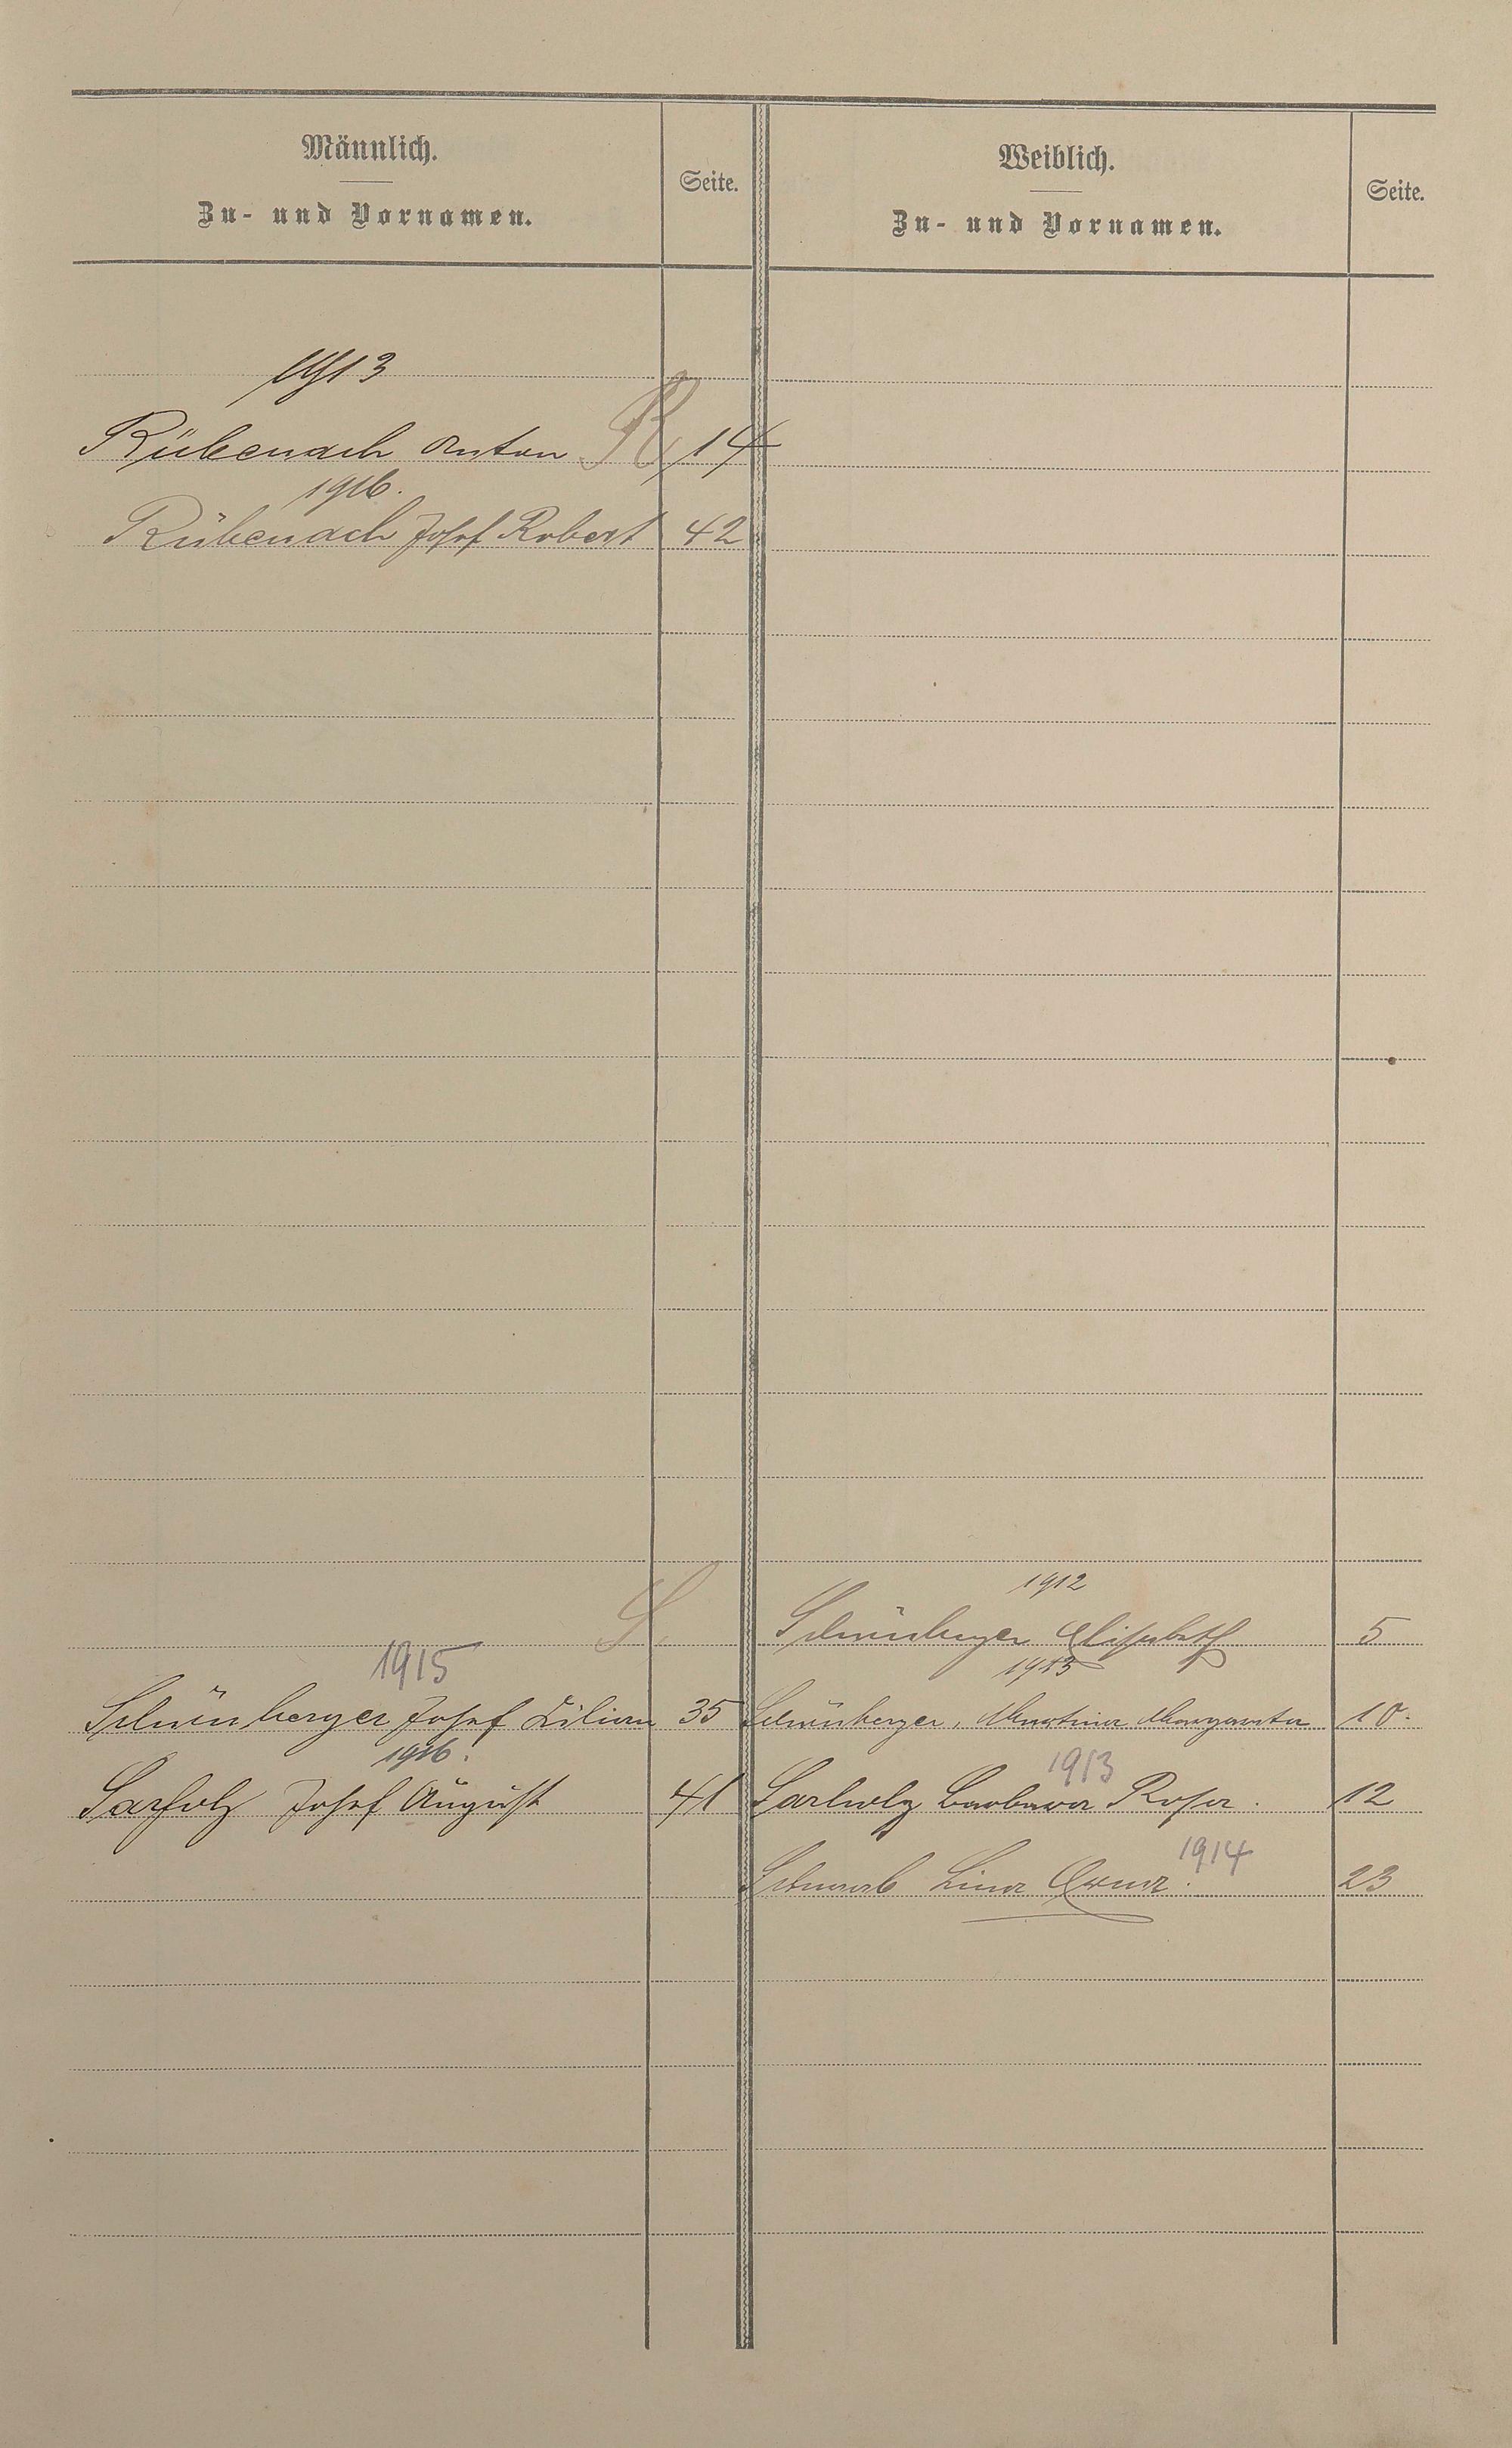 Männlich.
Zu- und Vornamen.
Seite.
Weiblich.
Zu- und Vornamen.
Seite.
1913
R
Rübenach Anton 14
1916.
Rübenach Josef Robert 42
S.
1912
Schönberger Elisabeth 5
1915
1913
Schönberger Josef Kilian 35
Schönberger, Martina Margareta 10.
1916.
1913
Sarholz Josef August 41
Sarholz Barbara Rosa. 12
1914
Schwab Lina Anna. 23